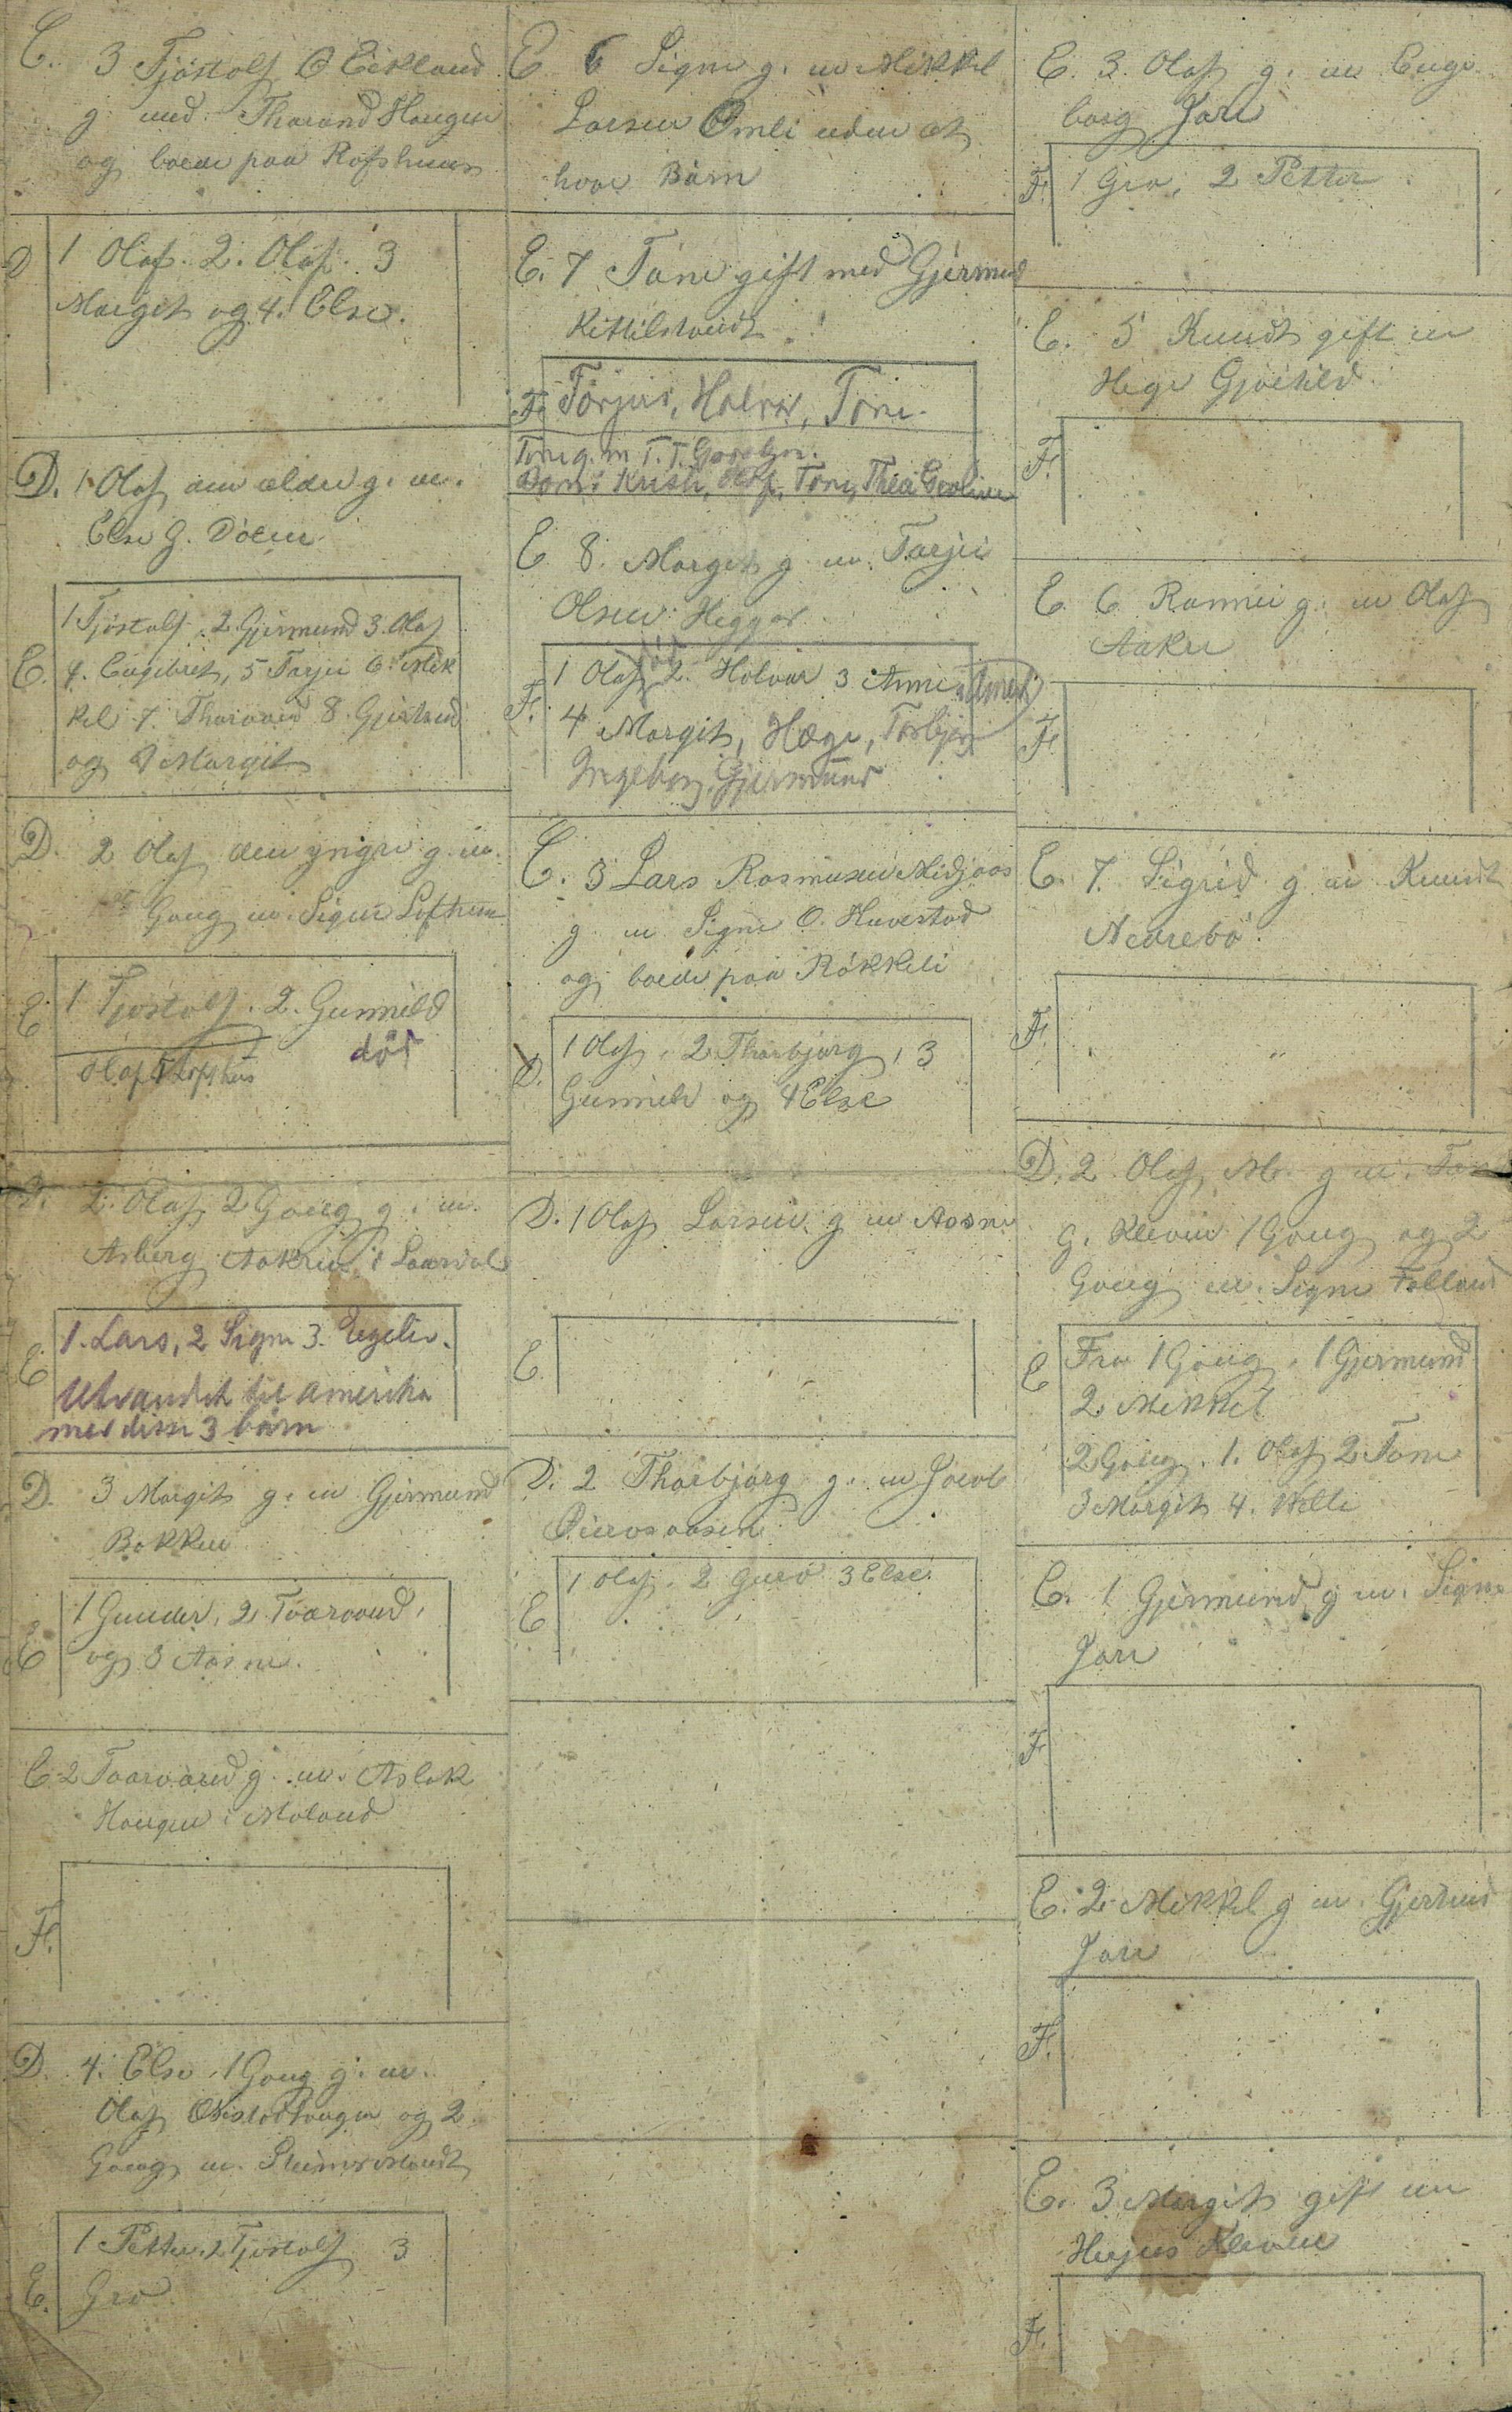 C. 3 Tjøstolf O Eikland
g med Tharand Haugen
og boede paa Rofshuus
D 1 Olaf. 2. Olaf. 3
Margit og 4. Else.
D. 1 Olaf den ældre g. m.
Else G. Dølen
E. 1 Tjøstolf. 2 Gjermund 3. Olaf
4. Engebret, 5 Tarjei 6 Mik
kel 7. Tharaand 8. Gjertrud
og 9 Margit
D. 2 Olaf den yngre g. m.
Gang m. Signe Lofthuus
E 1 Tjøstolf. 2. Gunnild
død
Olaf T Lofthus
D. 2. Olaf 2 Gang g. m.
Asberg Aakrei i Laardal
E 1. Lars, 2 Signe 3. Egeliv.
Utvandret til Amerika
med disse 3 børn
D. 3 Margit g. m Gjermund
Bakken
E 1 Gunder, 2 Taaraand,
og 3 Aasne.
E 2 Taarand g. m. Aslak
Haugen i Moland
F.
D. 4. Else 1 Gang g. m.
Olaf og 2
Gang m.
E. 1 Petter, 2 Tjøstolf 3
Gro
E 6 Signe g. m Mikkel
Larsen Omli uden at
have Børn
E. 7 Tone gift med Gjermund
Kittilslandt
F. Torjus, Halvor, Tone.
Tone g. m T. T.
Børn: Krist, Olaf, Tone, Thea
E 8. Margit g m. Tarjei
Olsen Heggar
død
F. 1 Olaf 2. Halvor 3 Anne
4 Margit, Hæge, Torbjør
Ingeborg, Gjermund
C. 3 Lars Rasmusen Midjaas
g m Signe O. Huvestad
og boede paa Rökkeli
D. 1 Olaf, 2 Thorbjørg, 3
Gunnild og 4 Else
D. 1 Olaf Larsen g m Aasne
E
D. 2 Thorbjørg g. m Jacob
E 1 Olaf. 2 Guro 3 Else.
E. 3. Olaf g. m Enge
borg Jore
F. 1 Gro, 2 Petter
E. 5 Knudt gift m
Hege Gjøtild
F.
E. 6 Rannei g. m Olaf
Aakre
F.
E. 7. Sigrid g m Knudt
Nedrebø.
F.
D. 2 Olaf M. g m. Tone
G. Kleven 1 Gang og 2
Gang m. Signe Folland
E Fra 1 Gang. 1 Gjermund
2. Mikkel
2 Gang. 1. Olaf 2 Tone
3 Margit 4. Helle
E. 1 Gjermund g m. Signe
Jore
F
E. 2. Mikkel g m. Gjertrud
Jore
F.
E. 3 Margit gift m
Herjus Kleven
F.